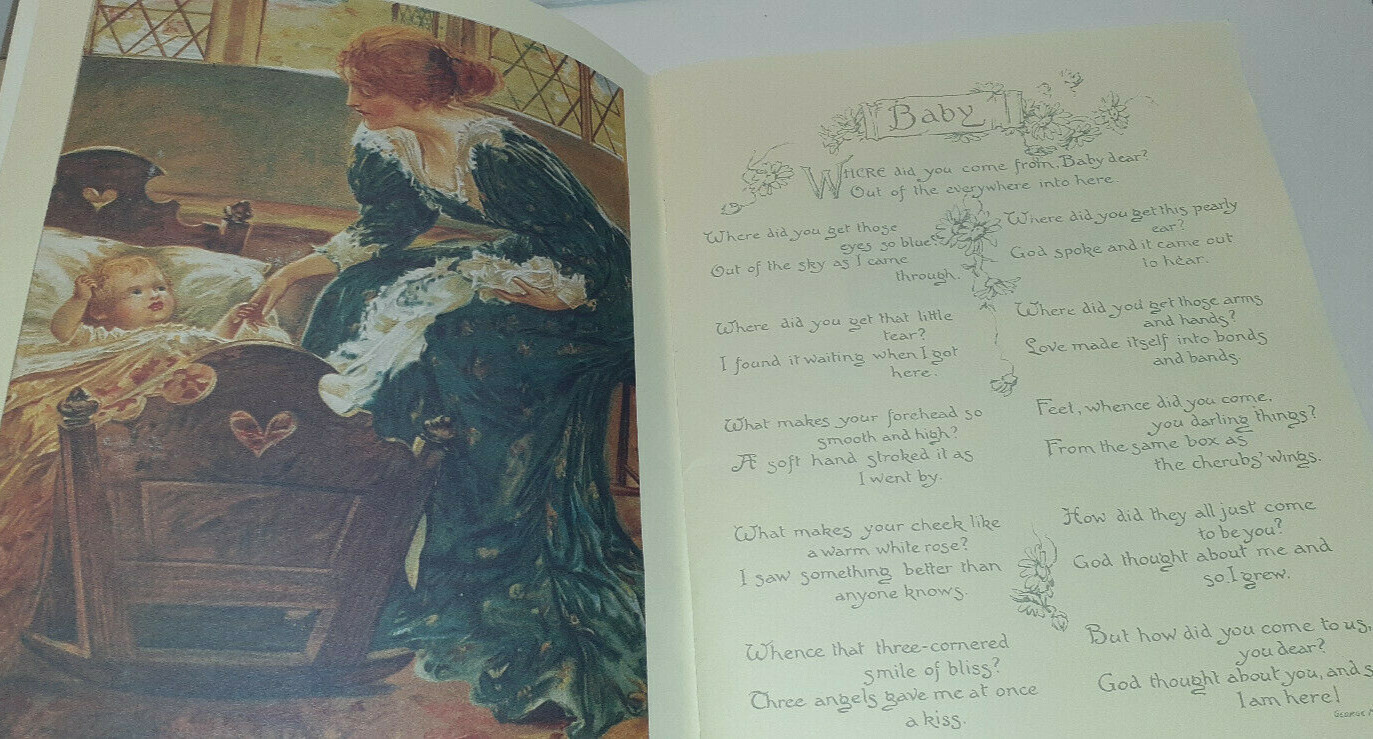 Baby
WHERE did you come from, Baby dear?
Out of the everywhere into here.
Where did you get those
eyes so blue?
Out of the sky as I came
through.
Where did you get that little
tear?
I found it waiting when I got
here.
What makes your forehead so
smooth and high?
A soft hand stroked it as
I went by.
What makes your cheek like
a warm white rose?
I saw something better than
anyone knows.
Whence that three-cornered
smile of bliss?
Three angels gave me at once
a kiss.
Where did you get this pearly
ear?
God spoke and it came out
to hear.
Where did you get those arms
and hands?
Love made itself into bonds
and bands.
Feet, whence did you come,
you darling things?
From the same box as
the cherubs' wings.
How did they all just come
to be you?
God thought about me and
so I grew.
But how did you come to us,
you dear?
God thought about you, and s
I am here!
GEORGE